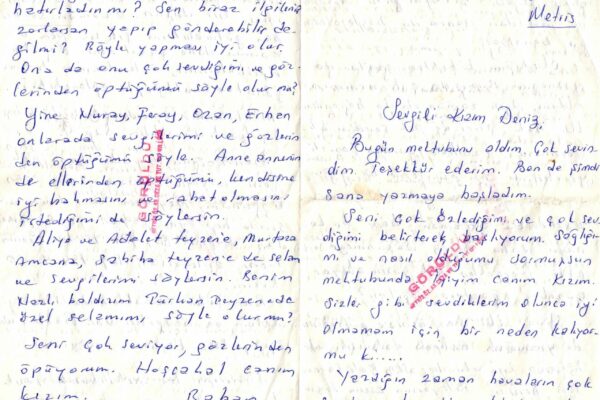 Metris
Sevgili Kızım Deniz,
Bugün mektubunu aldım. Çok sevin
dim Teşekkür ederim. Ben de şimdi
sana yazmaya başladım.
Seni çok özlediğimi ve çok sev
diğimi belirterek başlıyorum. Sağlığı
mı ve nasıl olduğumu sormuşsun
mektubunda. İyiyim canım kızım.
Sizler gibi sevdiklerim olunca iyi
olmamam için bir neden kalıyor
mu k.....
Yazdığın zaman havaların çok
GÖRÜLDÜ
hatırladın mı? Sen biraz ilgilenip
zorlarsan yapıp gönderebilir de
ğilmi? Böyle yapması iyi olur.
Ona da onu çok sevdiğimi ve göz
lerinden öptüğümü söyle olur mu?
Yine Nuray, Feray, Ozan, Erhan
onlarada sevgilerimi ve gözlerin
den öptüğümü söyle. Anneannenin
de ellerinden öptüğümü, kendisine
iyi bakmasını ve rahat olmasını
istediğimi de söylersin.
Aliye ve Adalet teyzene, Murtaza
Amcana, Sabiha teyzene de selam
ve sevgilerimi söylersin. Benim
Nazlı baldızım. Türkan Teyzenede
özel selamımı söyle olur mu?
Seni çok seviyor, gözlerinden
öpüyorum. Hoşçakal canım
kızım. Baban
GÖRÜLDÜ